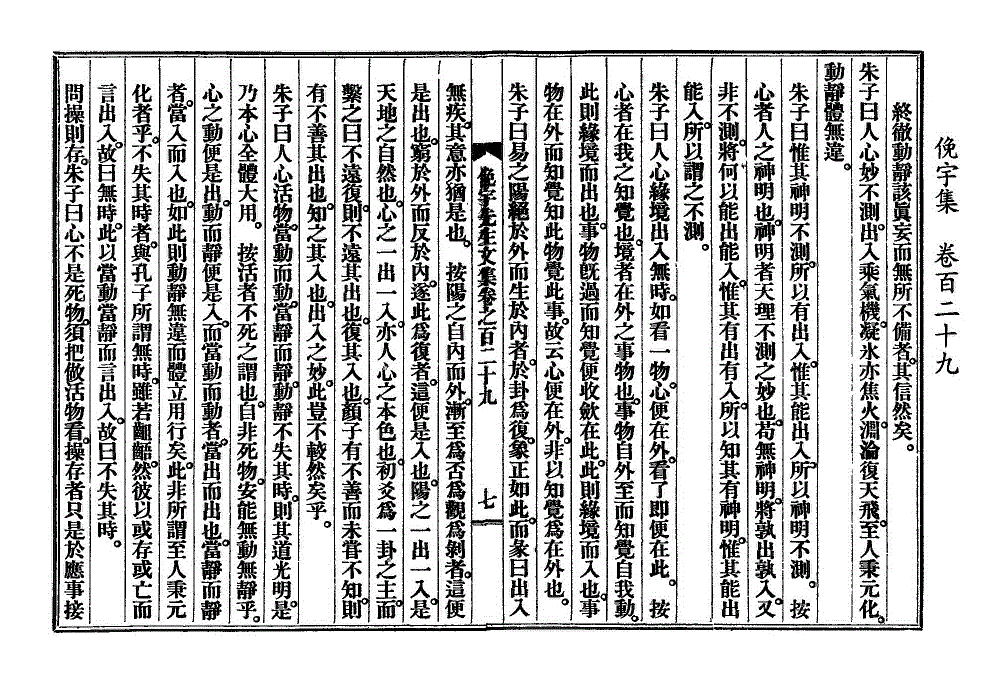 俛宇集 卷百二十九
終徹動靜該眞妄而無所不備者。其信然矣。
朱子曰人心妙不測。出入乘氣機。凝氷亦焦火。淵淪復天飛。至人秉元化。
動靜體無違。
朱子曰惟其神明不測。所以有出入。惟其能出入。所以神明不測。 按
心者人之神明也。神明者天理不測之妙也。苟無神明。將孰出孰入。又
非不測。將何以能出能入。惟其有出有入。所以知其有神明。惟其能出
能入。所以謂之不測。
朱子曰人心緣境出入無時。如看一物。心便在外。看了即便在此。 按
心者在我之知覺也。境者在外之事物也。事物自外至而知覺自我動。
此則緣境而出也。事物旣過而知覺便收斂在此。此則緣境而入也。事
物在外而知覺知此物覺此事。故云心便在外。非以知覺爲在外也。
朱子曰易之陽絕於外而生於內者。於卦爲復。象正如此。而彖曰出入
俛宇先生文集卷之百二十九 七
無疾。其意亦猶是也。 按陽之自內而外。漸至爲否爲觀爲剝者。這便
是出也。窮於外而反於內。遂此爲復者。這便是入也。陽之一出一入。是
天地之自然也。心之一出一入。亦人心之本色也。初爻爲一卦之主。而
繫之曰不遠復。則不遠其出也。復其入也。顏子有不善而未甞不知。則
有不善其出也。知之其入也。出入之妙。此豈不較然矣乎。
朱子曰人心活物。當動而動。當靜而靜。動靜不失其時。則其道光明。是
乃本心全體大用。 按活者不死之謂也。自非死物。安能無動無靜乎。
心之動便是出。動而靜便是入。而當動而動者。當出而出也。當靜而靜
者。當入而入也。如此則動靜無違而體立用行矣。此非所謂至人秉元
化者乎。不失其時者。與孔子所謂無時。雖若齟齬。然彼以或存或亡而
言出入。故曰無時。此以當動當靜而言出入。故曰不失其時。
問操則存。朱子曰心不是死物。須把做活物看。操存者只是於應事接